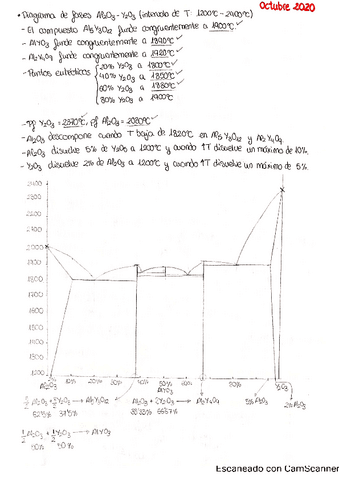 Octubre 2020
• Diagrama de fases Al2O3 - Y2O3 (intervalo de T: 1200°C - 2400°C)
- El compuesto Al5Y3O12 funde congruentemente a 1900°C ✓
- AlYO3 funde congruentemente a
- Al2Y4O9 funde congruentemente a 1920°C ✓
- Puntos eutécticos 20% Y2O3 a 1800°C ✓
40% Y2O3 a 1850°C ✓
60% Y2O3 a 1880°C ✓
80% Y2O3 a 1900°C
- pf Y2O3 = pf Al2O3 =
- descompone cuando T baja de 1820°C en Al5Y3O12 y Al2Y4O9
- Al2O3 disuelve 5% de Y2O3 a 1200°C y cuando ↑T disuelve un máximo de 10%.
- Y2O3 disuelve 2% de Al2O3 a 1200°C y cuando ↑T disuelve un máximo de 5%.
2400
2300
2200
2100
2000
1900
1800
1700
1600
1500
1400
1300
1200
Al2O3 10% 20% 30% 40% 50% 60% Y2O3
AlYO3
5% Al2O3 2% Al2O3
Al2O3 + Y2O3 → Al5Y3O12 Al2O3 + 2Y2O3 → Al2Y4O9
62'5% 37'5% 33'33% 66'67%
1/2 Al2O3 + 1/2 Y2O3 → AlYO3
50% 50%
Escaneado con CamScanner